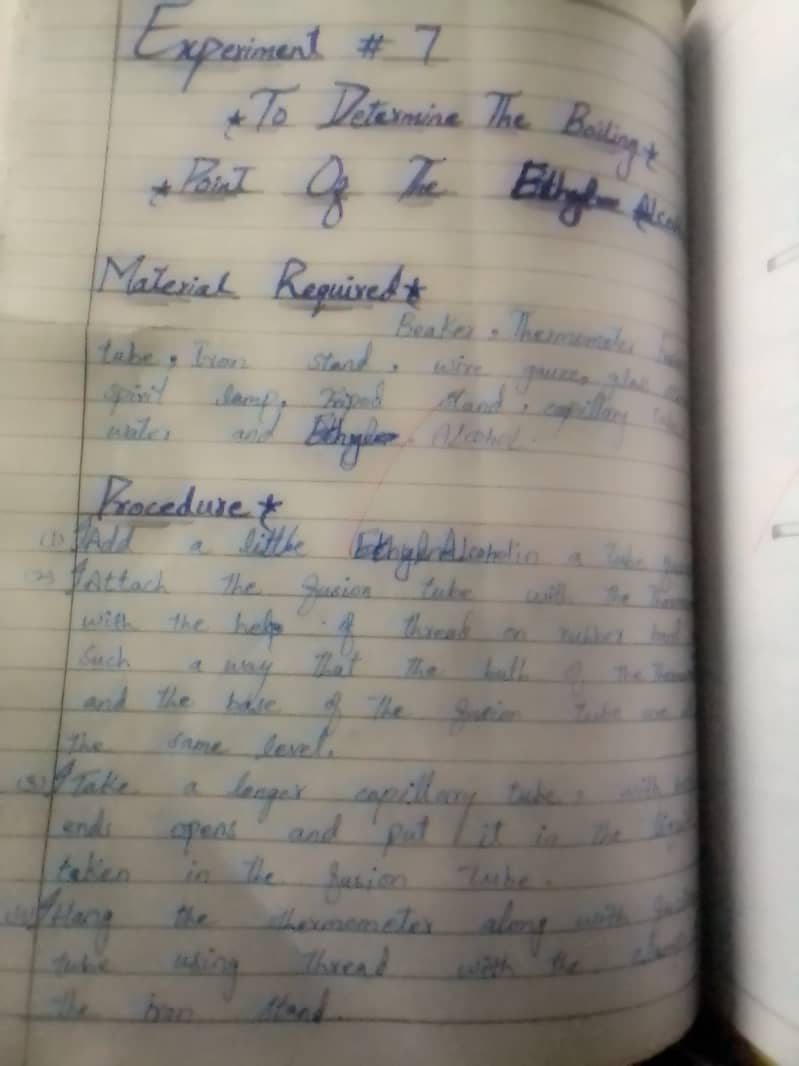 Experiment # 7
*To Determine The Boiling*
*Point Of The Ethyle Alco
Material Required*
Beaker, Thermometer
tube, Iron stand, wire gauze,
spirit lamp, Tripod stand, capillary
water and Ethyle Alcohol.
Procedure*
(1) Add a little Ethyle Alcohol in a Tube
(2) Attach The fusion tube with the Thermo
with the help of thread or rubber
Such a way That The bulb of The Thermo
and the base of The fusion Tube are
The same level.
(3) Take a longer capillary tube, with
ends opens and put it in The
taken in the fusion Tube.
(4) Hang the thermometer along with
tube using Thread with the
the Iron stand.